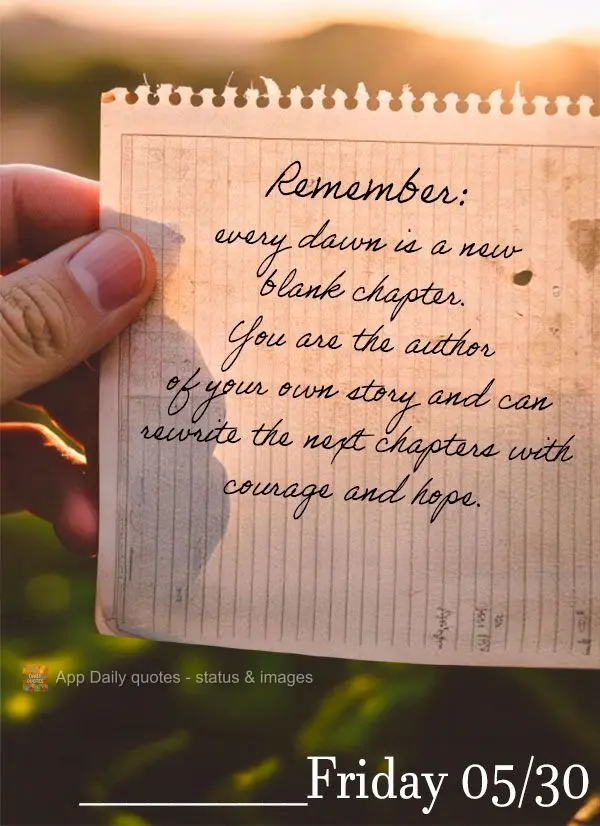 Remember:
every dawn is a new
blank chapter.
You are the author
of your own story and can
rewrite the next chapters with
courage and hope.
App Daily quotes - status & images
__________Friday 05/30